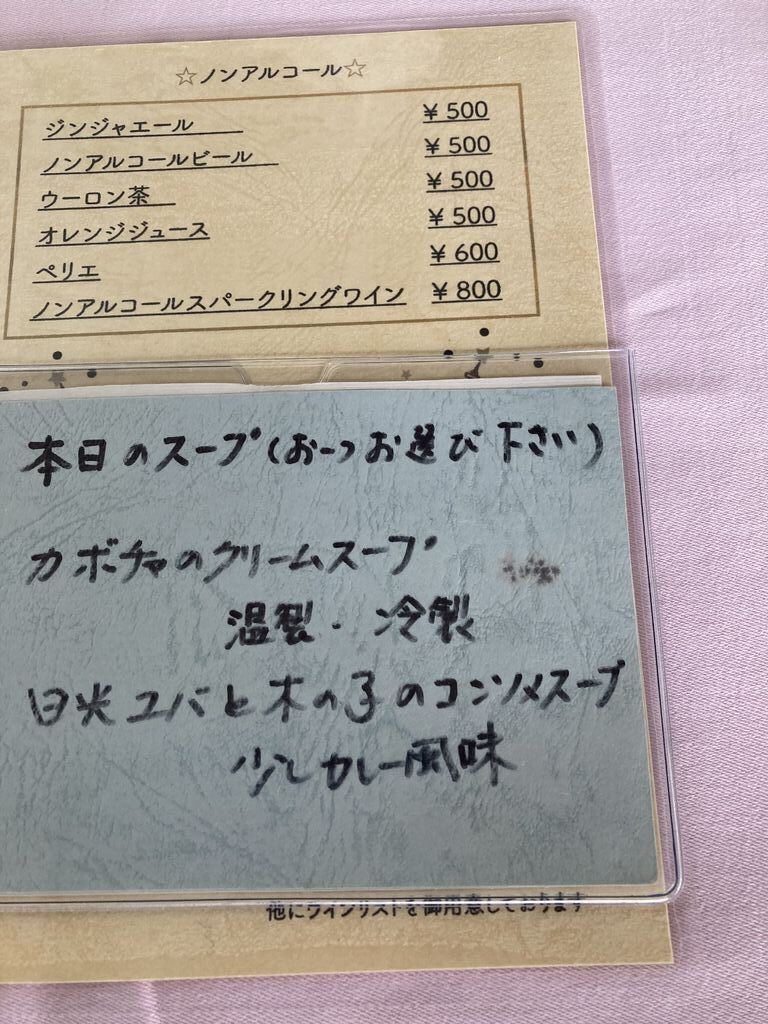 ☆ノンアルコール☆
ジンジャエール ¥500
ノンアルコールビール ¥500
ウーロン茶 ¥500
オレンジジュース ¥500
ペリエ ¥600
ノンアルコールスパークリングワイン ¥800
本日のスープ(お一つお選び下さい)
カボチャのクリームスープ
温製・冷製
日光ユバと木の子のコンソメスープ
少しカレー風味
他にワインリストを御用意しております